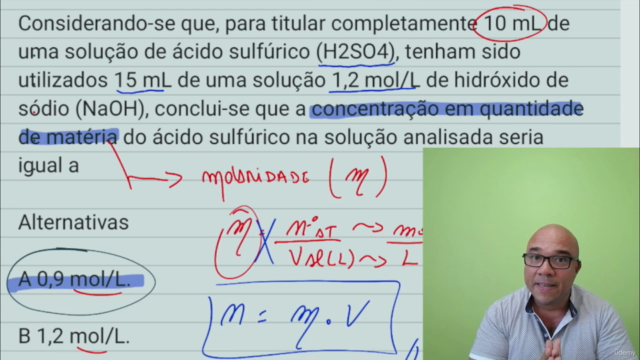 Considerando-se que, para titular completamente 10 mL de
uma solução de ácido sulfúrico (H2SO4), tenham sido
utilizados 15 mL de uma solução 1,2 mol/L de hidróxido de
sódio (NaOH), conclui-se que a concentração em quantidade
de matéria do ácido sulfúrico na solução analisada seria
igual a
MOLARIDADE (η)
Alternativas
A 0,9 mol/L.
V (L) L
n = η . V
B 1,2 mol/L.